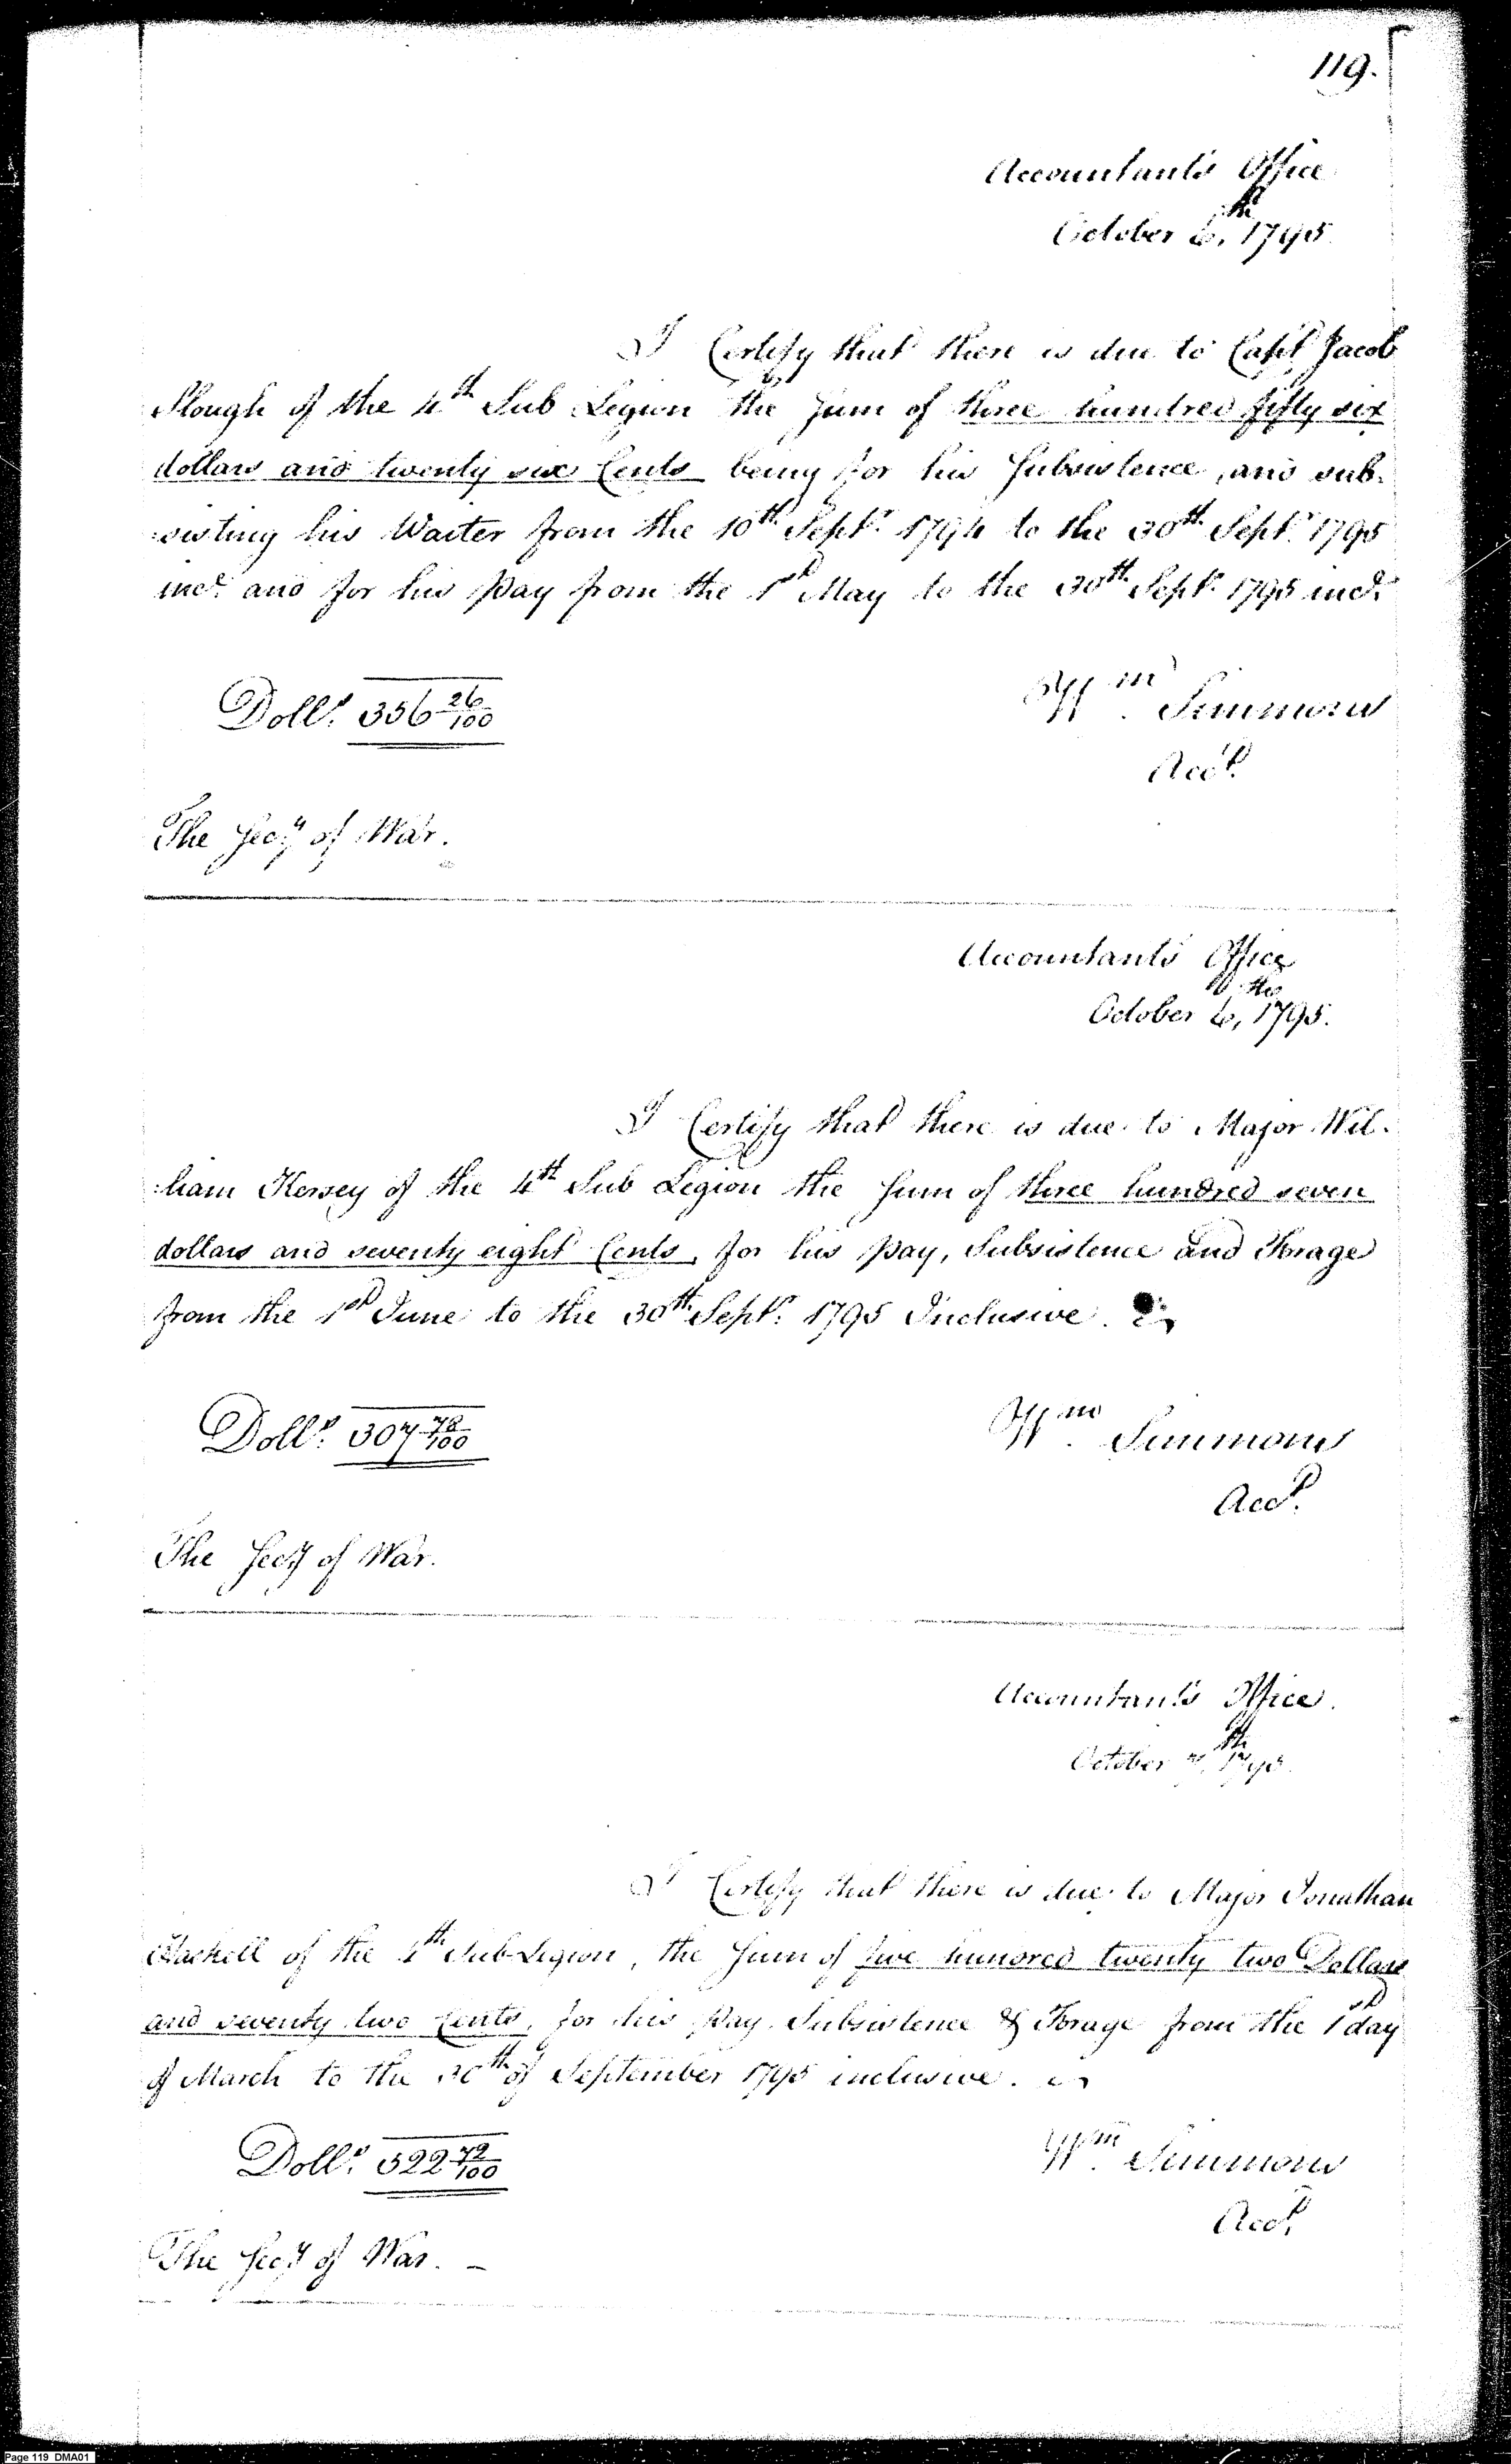 119.
Accountant's Office
October 6th, 1795.
I Certify that there is due to Capt. Jacob
Slough of the 4th Sub Legion the Sum of three hundred fifty six
dollars and twenty six Cents being for his Subsistence, and sub-
-sisting his Waiter from the 10th Septr. 1794 to the 30th Septr. 1795
incl. and for his Pay from the 1st May to the 30th Septr. 1795 incl.
Dolls. 356 26/100
Wm. Simmons
Acct.
The Secy of War.
Accountant's Office
October 6th, 1795.
I Certify that there is due to Major Wil-
-liam Kersey of the 4th Sub Legion the Sum of three hundred seven
dollars and seventy eight Cents, for his pay, Subsistence and Forage
from the 1st June to the 30th Septr. 1795 Inclusive.
Dolls. 307 78/100
Wm. Simmons
Acct.
The Secy of War.
Accountant's Office.
October 7th, 1795.
I Certify that there is due to Major Jonathan
Haskell of the 4th Sub-Legion, the Sum of five hundred twenty two Dollars
and seventy two Cents, for his Pay Subsistence & Forage from the 1st day
of March to the 30th of September 1795 inclusive.
Dolls. 522 72/100
Wm. Simmons
Acct.
The Secy of War. -
Page 119 DMA01